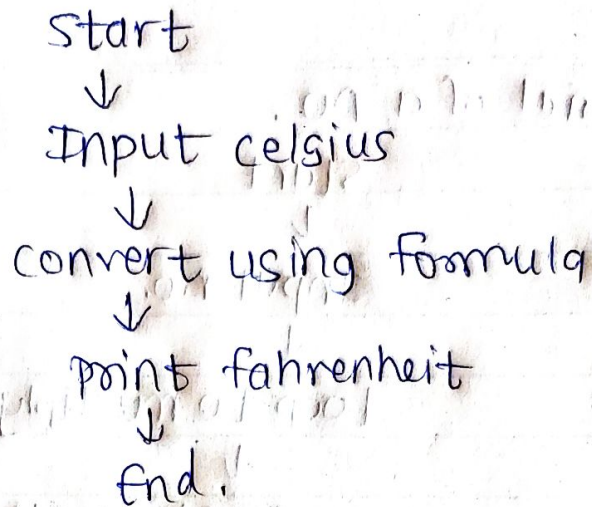 Start
↓
Input celsius
↓
convert using formula
↓
print fahrenheit
↓
End.